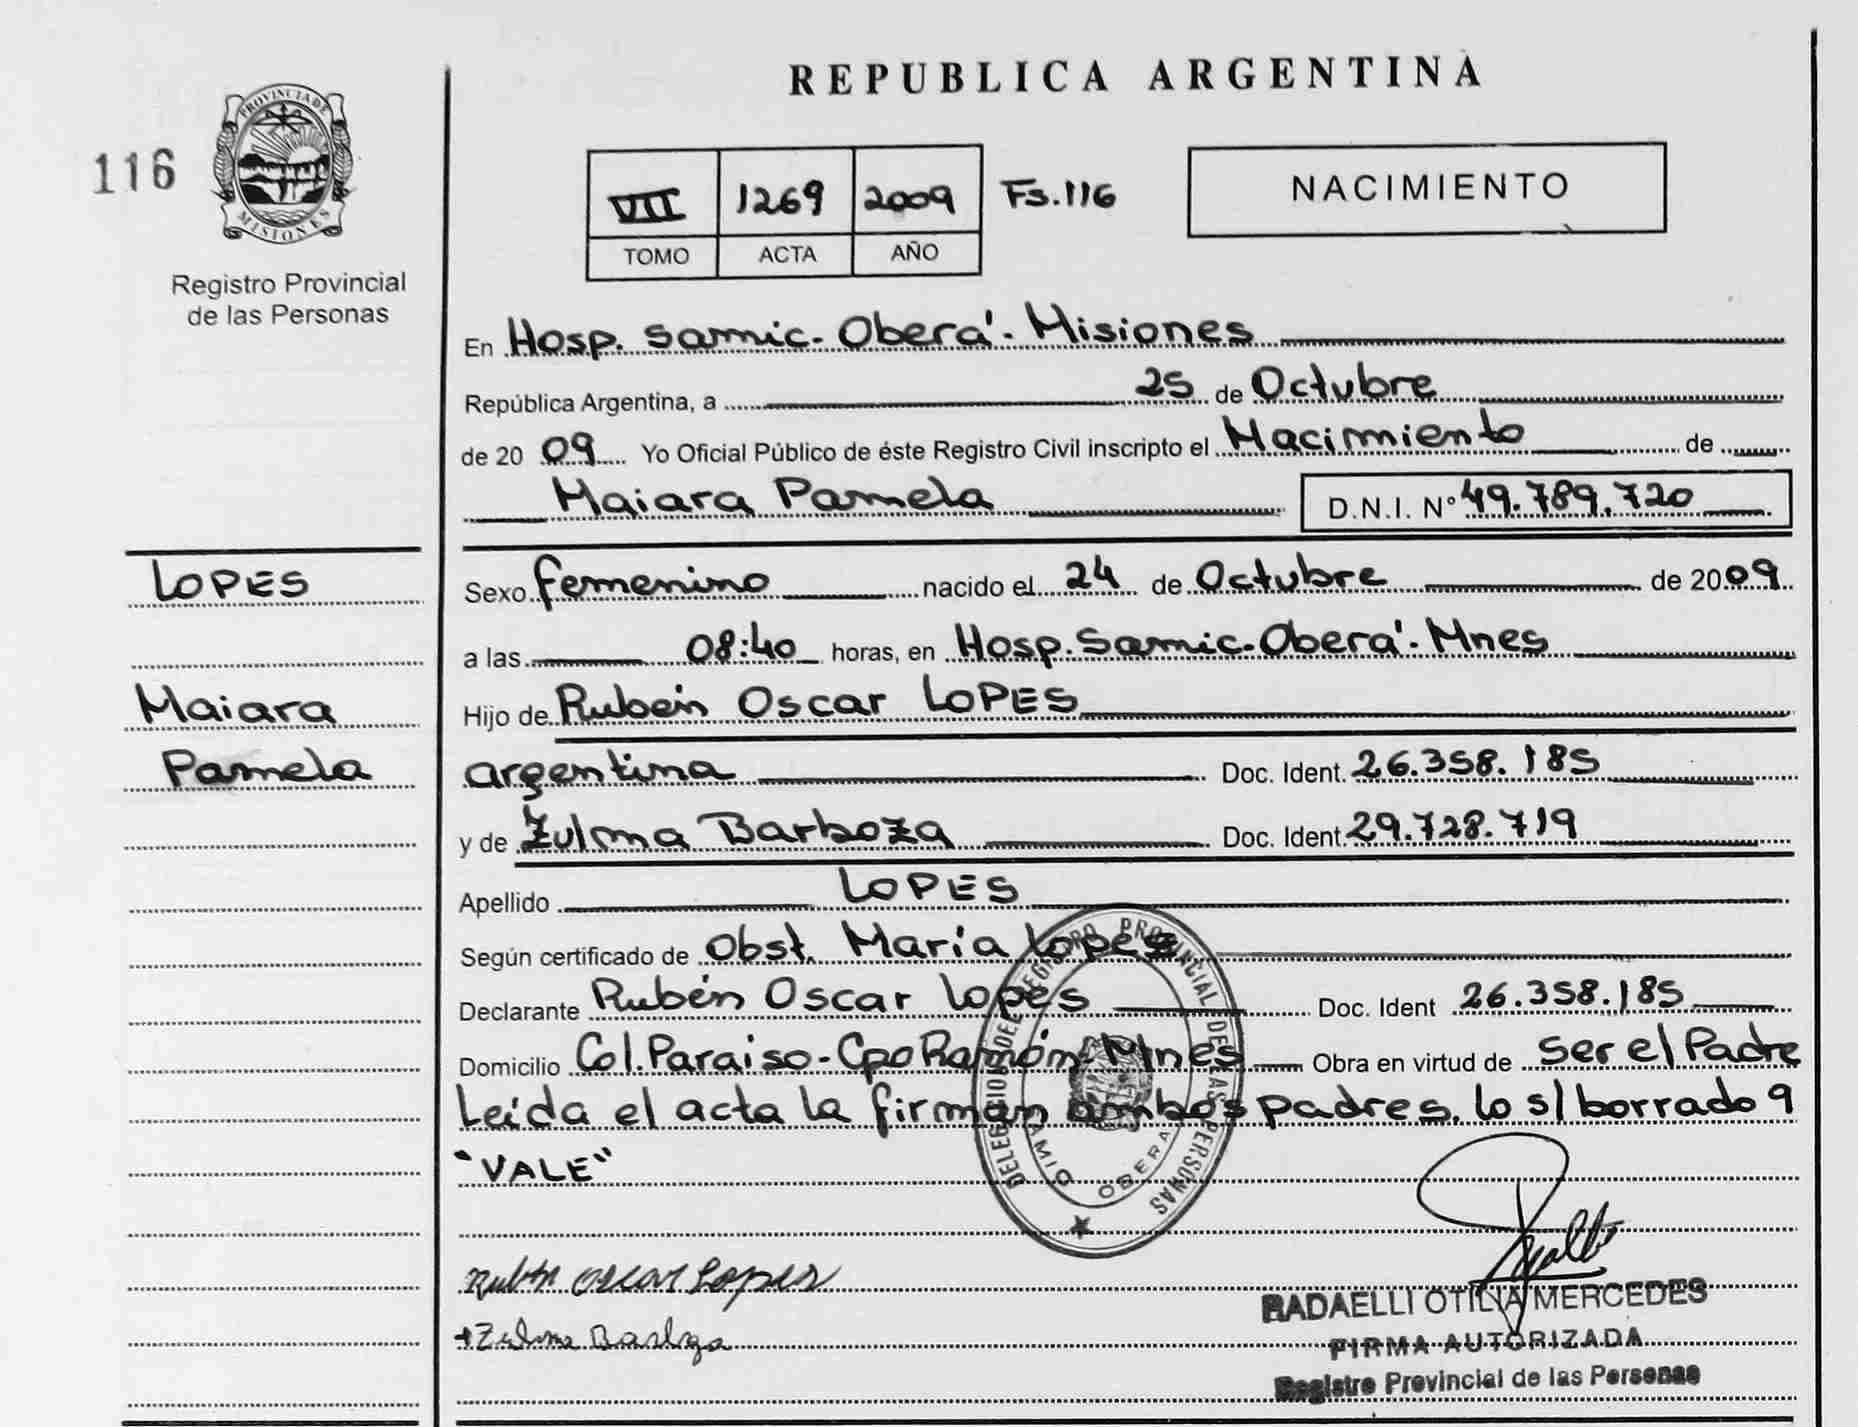 REPUBLICA ARGENTINA
116
PROVINCIA DE
MISIONES
Registro Provincial
de las Personas
VII 1269 2009 Fs.116
TOMO ACTA AÑO
NACIMIENTO
En Hosp. Samic-Oberá-Misiones
República Argentina, a 25 de Octubre
de 2009 Yo Oficial Público de éste Registro Civil inscripto el Nacimiento de
Maiara Pamela D.N.I. N° 49.789.720
LOPES
Maiara
Pamela
Sexo femenino nacido el 24 de Octubre de 2009
a las 08:40 horas, en Hosp. Samic-Oberá-Mnes
Hijo de Rubén Oscar LOPES
argentina Doc. Ident. 26.358.185
y de Zulma Barboza Doc. Ident. 29.728.719
Apellido LOPES
Según certificado de Obst. María Lopes
Declarante Rubén Oscar Lopes Doc. Ident 26.358.185
Domicilio Col. Paraiso-Cpo Ramón-Mnes Obra en virtud de ser el Padre
Leída el acta la firman ambos padres. lo s/borrado 9
"VALE"
DELEGACION DEL REGISTRO PROVINCIAL DE LAS PERSONAS
OBERA
Rubén Oscar Lopes
Zulma Barboza
RADAELLI OTILIA MERCEDES
FIRMA AUTORIZADA
Registro Provincial de las Personas